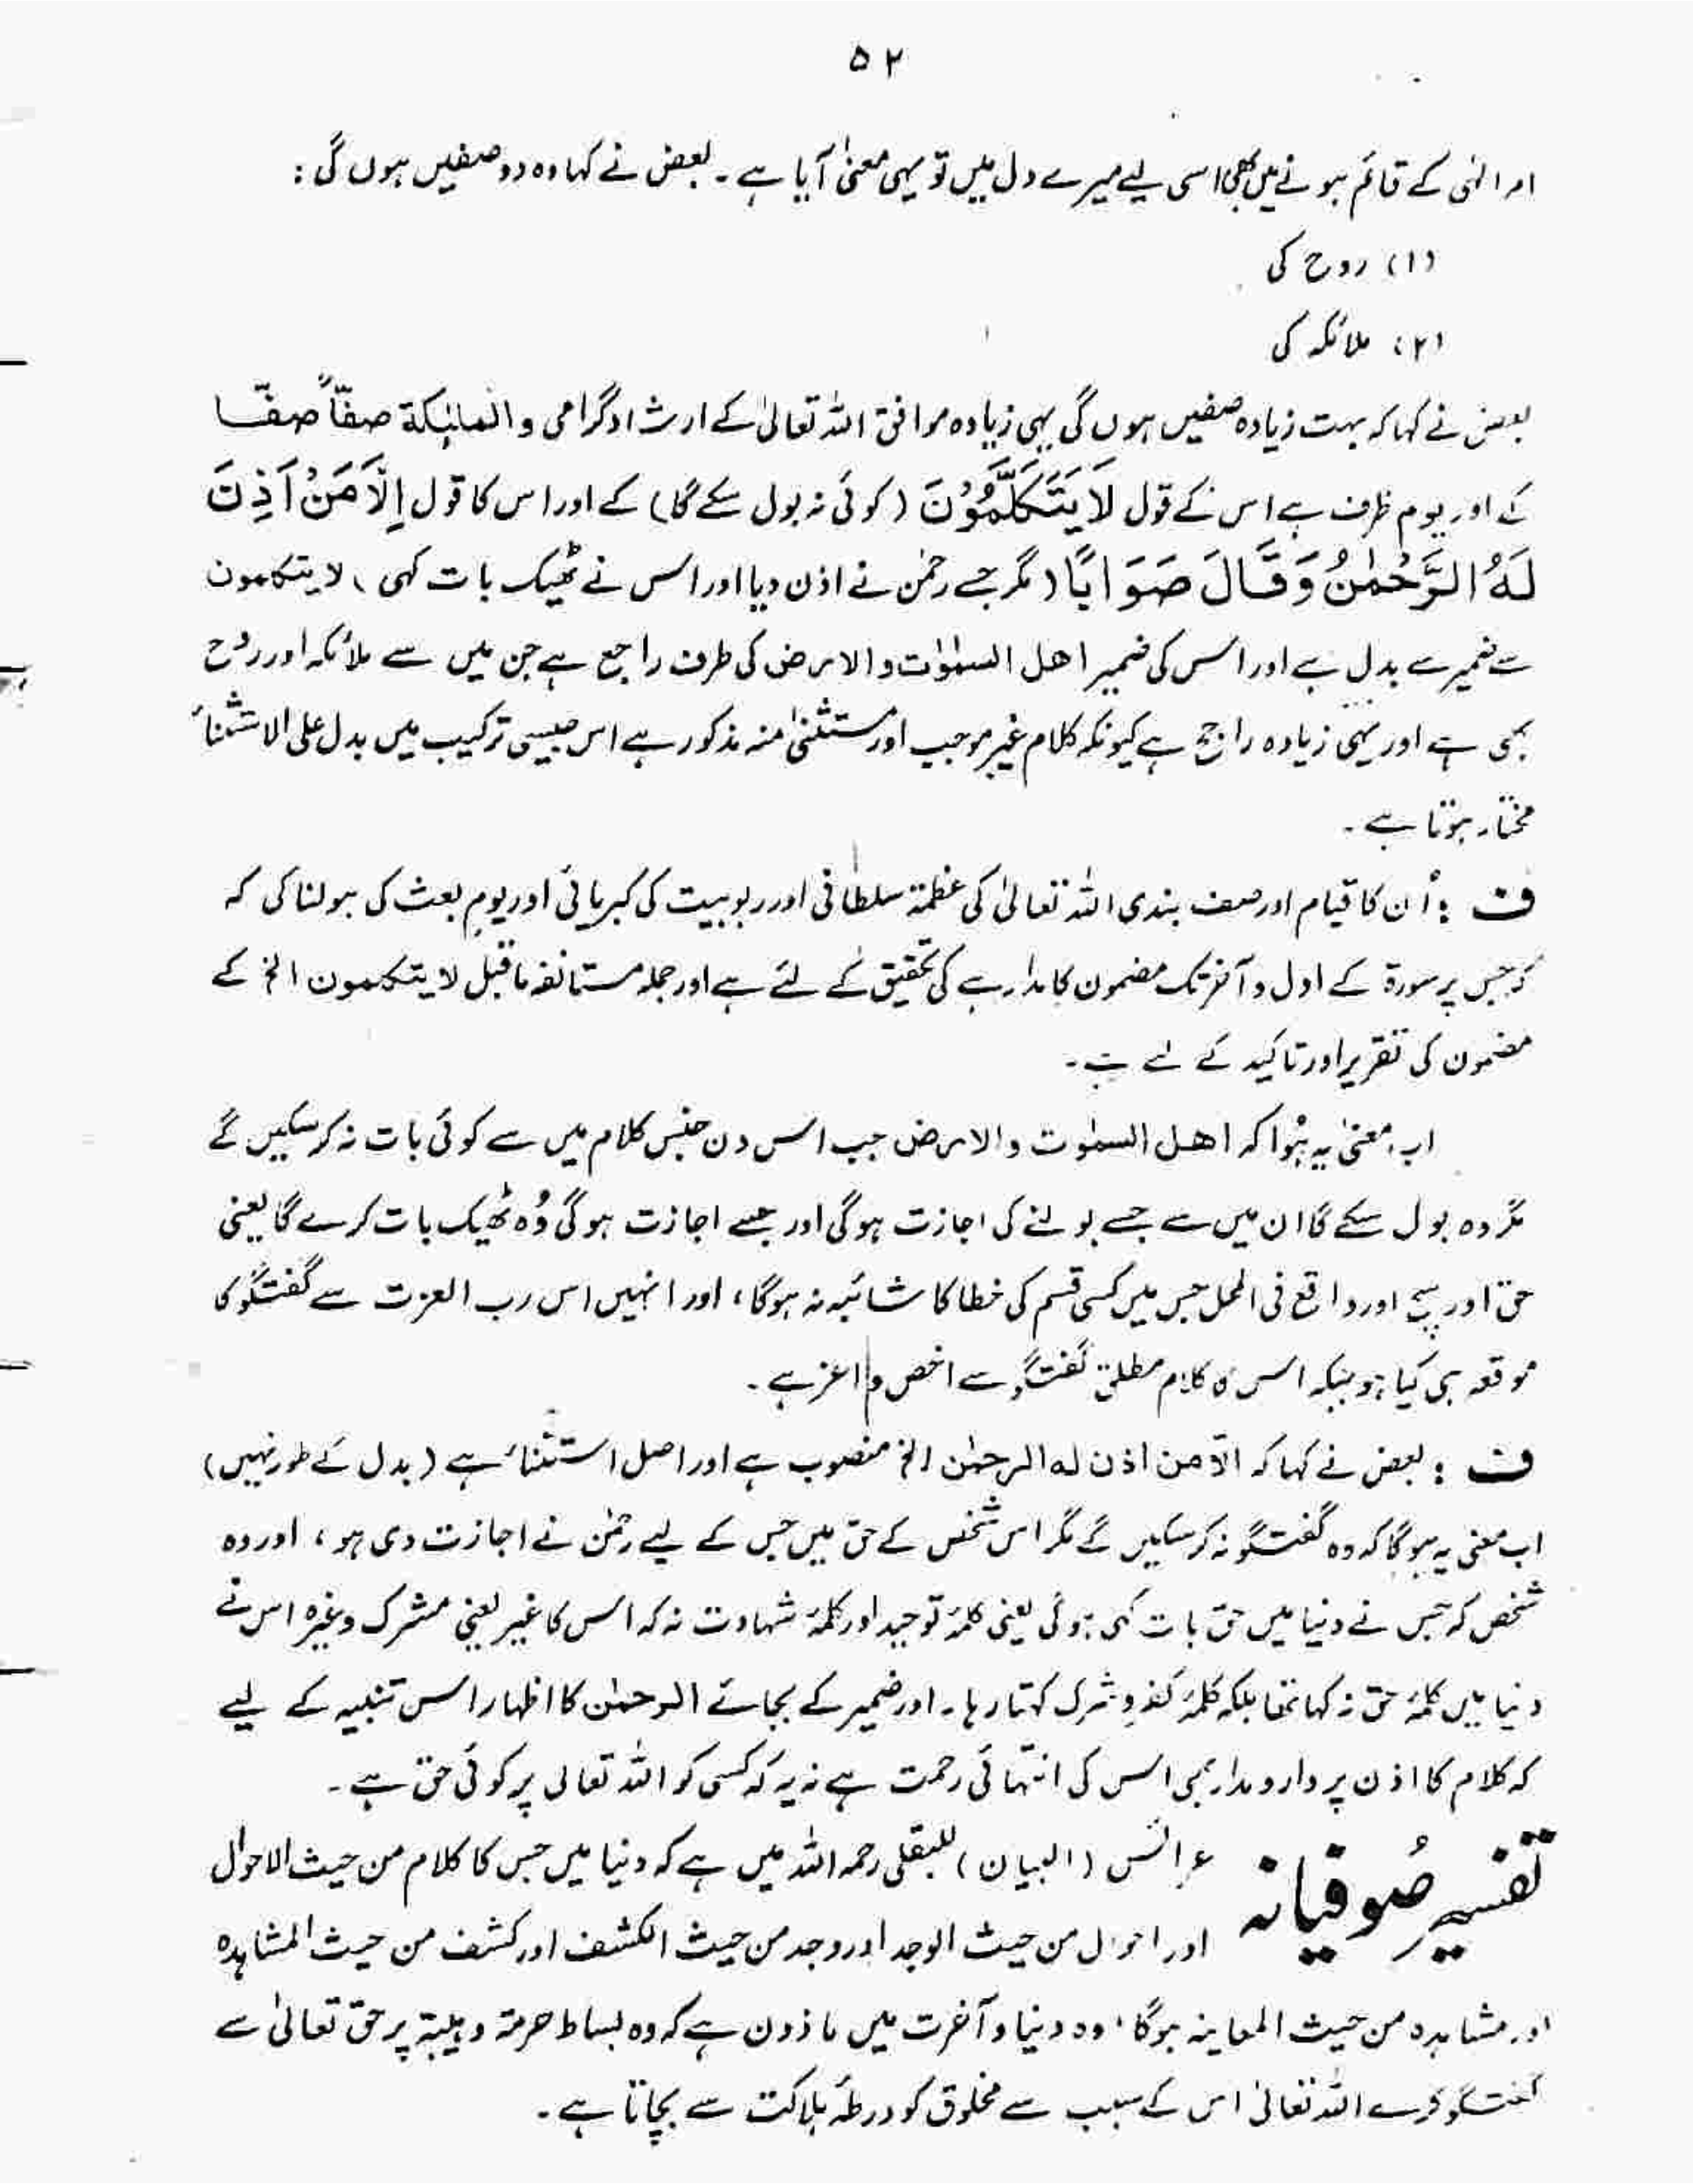 ۵۲
اور انہی کے قائم ہونے میں بھی اسی لیے میرے دل میں تو یہی معنیٰ آیا ہے۔ بعض نے کہا وہ دو صفیں ہوں گی :
(۱) روح کی
(۲) ملائکہ کی
بعض نے کہا کہ بہت زیادہ صفیں ہوں گی یہی زیادہ موافق اللہ تعالیٰ کے ارشاد گرامی و الملٰئکة صفّاً صفّا
کے اور یوم ظرف ہے اس کے قول لَا يَتَكَلَّمُوْنَ (کوئی نہ بول سکے گا) کے اور اس کا قول اِلَّا مَنْ اَذِنَ
لَهُ الرَّحْمٰنُ وَ قَالَ صَوَابًا (مگر جسے رحمٰن نے اذن دیا اور اس نے ٹھیک بات کہی) لا یتکلمون
سے ضمیر سے بدل ہے اور اس کی ضمیر اھل السمٰوٰت و الارض کی طرف راجع ہے جن میں سے ملائکہ اور روح
بھی ہے اور یہی زیادہ راجح ہے کیونکہ کلام غیر موجب اور مستثنیٰ منہ مذکور ہے اس جیسی ترکیب میں بدل علی الاستثناء
مختار ہوتا ہے۔
ف : اُن کا قیام اور صف بندی اللہ تعالیٰ کی عظمۃ سلطانی اور ربوبیت کی کبریائی اور یوم بعث کی ہولناکی کہ
کہ جس پر سورۃ کے اول و آخر تک مضمون کا مدار ہے کی تحقیق کے لئے ہے اور جملہ مستانفہ ماقبل لا یتکلمون الخ کے
مضمون کی تقریر اور تاکید کے لئے ہے۔
اب معنیٰ یہ ہُوا کہ اھل السمٰوت والارض جب اس دن جنس کلام میں سے کوئی بات نہ کر سکیں گے
مگر وہ بول سکے گا ان میں سے جسے بولنے کی اجازت ہوگی اور جسے اجازت ہوگی وُہ ٹھیک بات کرے گا یعنی
حق اور سچ اور واقع فی المحل جس میں کسی قسم کی خطا کا شائبہ نہ ہوگا، اور انہیں اس رب العزت سے گفتگو کا
موقعہ ہی کیا ہو جبکہ اس کا کلام مطلق گفتگو سے اخص و اعز ہے۔
ف : بعض نے کہا کہ الّا من اذن له الرحمٰن الخ منصوب ہے اور اصل استثناء ہے (بدل کے طور نہیں)
اب معنی یہ ہوگا کہ وہ گفتگو نہ کر سکیں گے مگر اس شخص کے حق میں جس کے لیے رحمٰن نے اجازت دی ہو، اور وہ
شخص کہ جس نے دنیا میں حق بات کہی ہوئی یعنی کلمۂ توحید اور کلمۂ شہادت نہ کہ اس کا غیر یعنی مشرک وغیرہ اس نے
دنیا میں کلمۂ حق نہ کہا تھا بلکہ کلمۂ کفر و شرک کہتا رہا۔ اور ضمیر کے بجائے الرحمٰن کا اظہار اس تنبیہ کے لیے
کہ کلام کا اذن پر دارومدار بھی اس کی انتہائی رحمت ہے نہ یہ کہ کسی کو اللہ تعالی پر کوئی حق ہے۔
تفسیر صُوفیانہ عرائس (البیان) للبقلی رحمہ اللہ میں ہے کہ دنیا میں جس کا کلام من حیث الاحوال
اور احوال من حیث الوجد اور وجد من حیث الکشف اور کشف من حیث المشاہدہ
اور مشاہدہ من حیث المعاینہ ہوگا، وہ دنیا و آخرت میں ماذون ہے کہ وہ بساط حرمۃ و ہیبۃ پر حق تعالیٰ سے
گفتگو کرے اللہ تعالیٰ اس کے سبب سے مخلوق کو ورطۂ ہلاکت سے بچاتا ہے۔